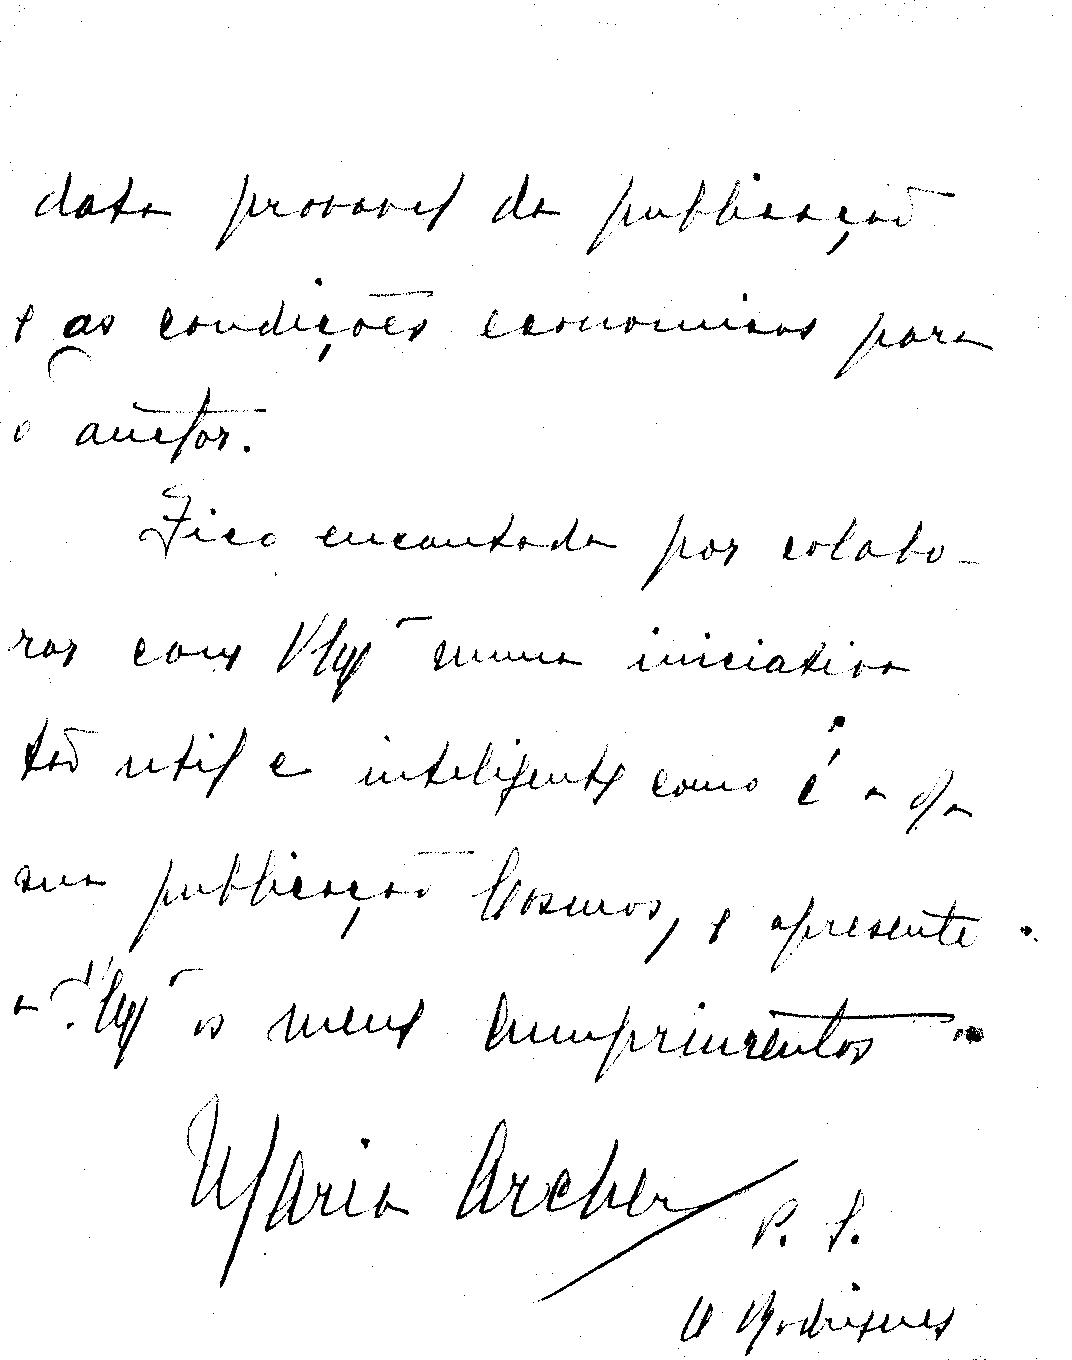 data provavel da publicação
e as condições economicas para
o auctor.
Fico encantada por colabo-
rar com V. Exª numa iniciativa
tão util e inteligente como é a da
sua publicação Cosmos, e apresente
a V. Exª os meus cumprimentos
Maria Archer
P. S.
O Rodrigues